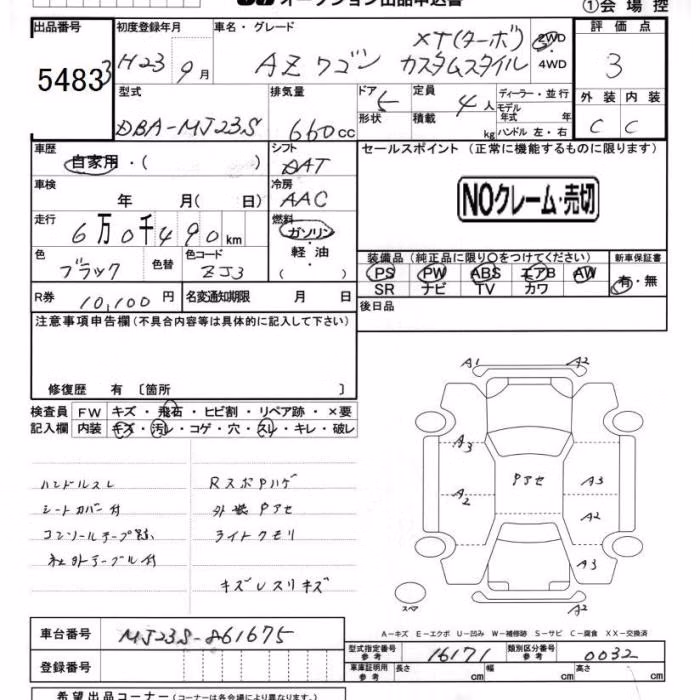 オークション出品申込書
①会場控
出品番号
5483
初度登録年月
H23 9月
車名・グレード
AZワゴン XT(ターボ)
カスタムスタイル
2WD
4WD
評価点
3
型式
DBA-MJ23S
排気量
660cc
ドア
5
形状
定員
4人
積載
kg
ディーラー・並行
モデル年式 年
ハンドル 左・右
外装 内装
C C
車歴
自家用・( )
シフト
AAT
セールスポイント (正常に機能するものに限ります)
車検
年 月( 日)
冷房
AAC
NOクレーム・売切
走行
6万0千490km
燃料
ガソリン
・
軽油
( )
色
ブラック
色替
色コード
ZJ3
装備品(純正品に限り○をつけてください)
新車保証書
PS PW ABS エアB AW
SR ナビ TV カワ
有・無
R券
10,100円
名変通知期限 月 日
後日品
注意事項申告欄(不具合内容等は具体的に記入して下さい)
修復歴 有〔箇所 〕
検査員
記入欄
FW キズ・飛石・ヒビ割・リペア跡・×要
内装 キズ・汚レ・コゲ・穴・スレ・キレ・破レ
ハンドルスレ
シートカバー付
コンソールテープ跡
社外テーブル付
RスポPハゲ
外装Pアセ
ライトクモリ
キズレスリキズ
A1
A2
A3
A2
Pアセ
A3
A2
A3
A2
スペア
A-キズ E-エクボ U-凹み W-補修跡 S-サビ C-腐食 XX-交換済
車台番号
MJ23S-861675
型式指定番号
参考
16171
類別区分番号
参考
0032
登録番号
車庫証明用
参考
長さ
cm
幅
cm
高さ
cm
希望出品コーナー(コーナーは各会場により異なります。)